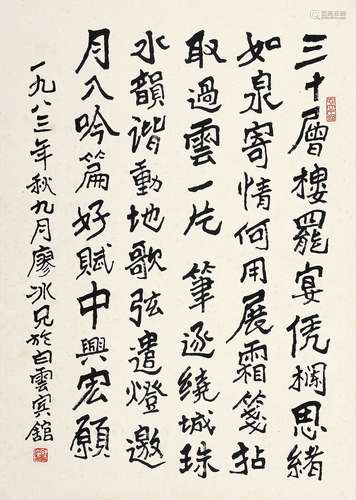 三十層樓罷宴凭欄思緒
如泉寄情何用展霜箋拈
取過雲一片 筆逐繞城珠
水韻谐動地歌弦遣燈邀
月入吟篇好賦中興宏願
一九八三年秋九月廖冰兄於白雲宾舘